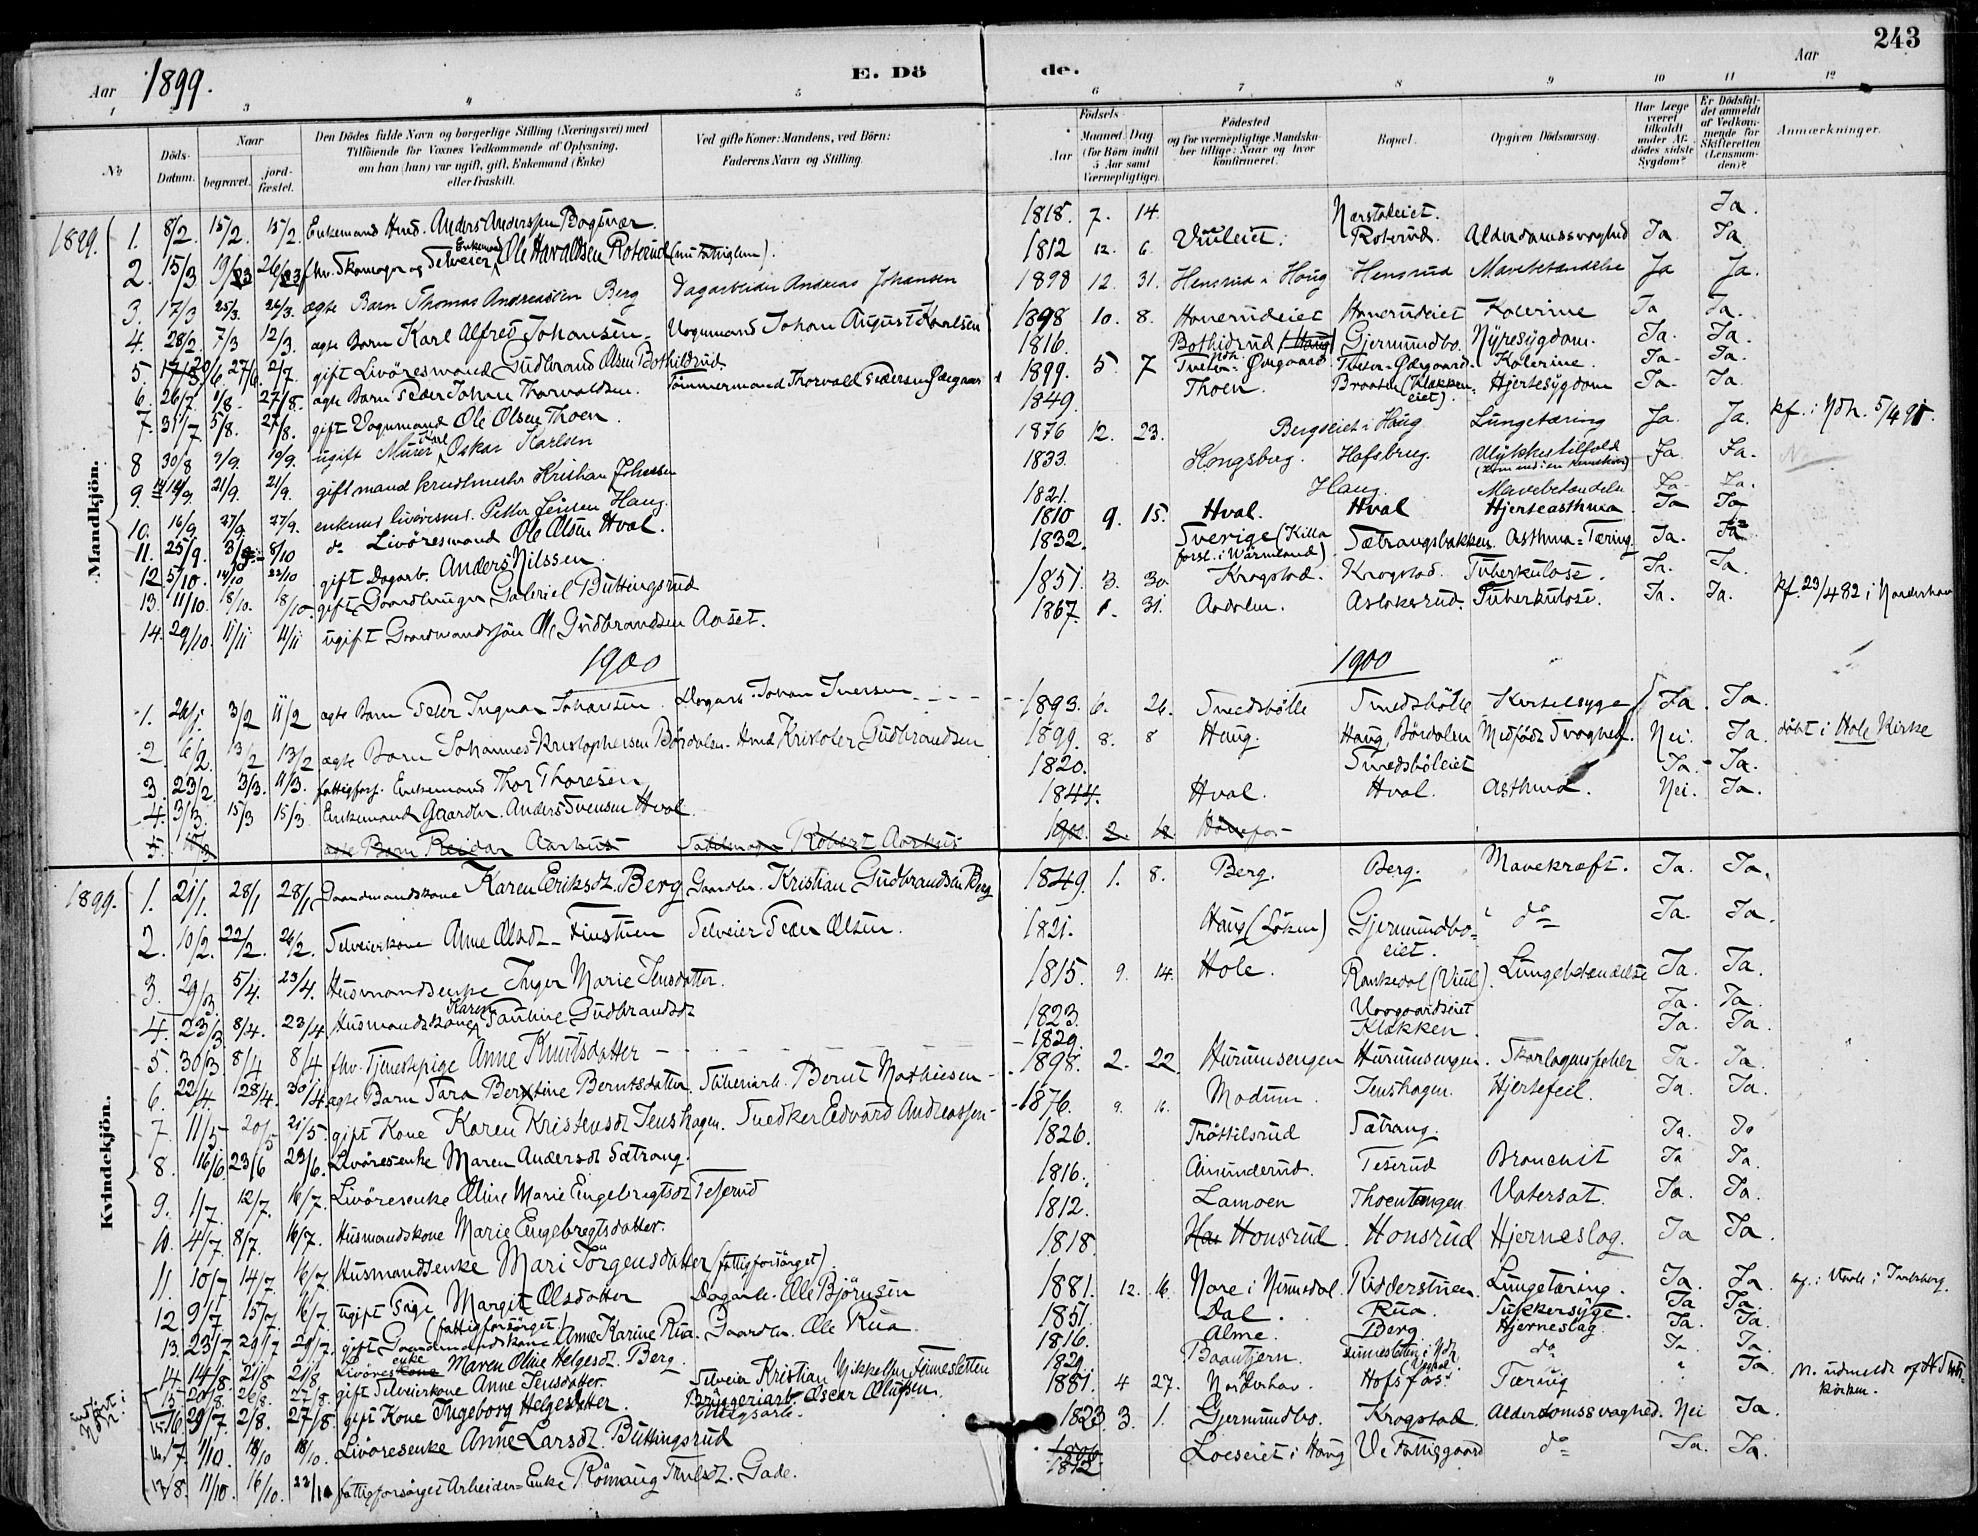 243
Aar 1899.
E. Döde.
Aar
1 3 4 5 6 7 8 9 10 11 12
No
Döds-Datum.
Naar
begravet.
jord-fæstet.
Den Dödes fulde Navn og borgerlige Stilling (Næringsvei) med
Tilföiende for Voxnes Vedkommende af Oplysning,
om han (hun) var ugift, gift, Enkemand (Enke)
eller fraskilt.
Ved gifte Koner: Mandens, ved Börn:
Faderens Navn og Stilling.
Födsels-
Aar
Maaned. Dag
(for Börn indtil
5 Aar samt
Værnepligtige).
Födested
og for værnepligtige Mandska-
ber tillige: Naar og hvor
konfirmeret.
Bopæl.
Opgiven Dödsaarsag.
Har Læge
været
tilkaldt
under Af-
dödes sidste
Sygdom?
Er Dödsfal-
det anmeldt
af Vedkom-
mende for
Skifteretten
(Lensman-
den)?
Anmærkninger.
Mandkjön.
1899. 1. 8/2. 15/2. 15/2. Enkemand Hmd. Anders Anderssen 1818. 7. 14. Næstadeiet. Ja.
2. 15/3 19/3 26/3 fhv. Skomager og Selveier Enkemand Ole Haraldsen Roterud (nu Fattiglem). 1812 12. 6. Viuleiet. Roterud. Alderdomssvaghed Ja. Ja.
3. 17/3 25/3. 26/3. ægte Barn Thomas Andreassen Berg Dagarbeider Andreas Johansen 1898 12. 31. Hensrud i Haug Hensrud Mavebetændelse Ja Ja.
4. 28/2. 7/3 12/3. ægte Barn Karl Alfred Johansen. Vognmand Johan August Karlsen 1898 10. 8. Honerudeiet Honerudeiet Kolerine Ja Ja.
5. 20/6. 27/6. 2/7. gift Livöresmand Gudbrand Olsen Bothildrud. 1816. Bothildrud (Haug) Gjermundbo. Nyresygdom. Ja. Ja.
6. 26/7. 1/8. 27/8. ægte Barn Peder Johan Thorvaldsen. Tömmermand Thorvald Pedersen 1899. 5. 7 Kolerine. Ja. Ja.
7. 31/7 5/8. 27/8. gift Vognmand Ole Olsen Thoen. 1849. Thoen. Braaten (Klækken eiet). Hjertesygdom Ja. Ja.
8 30/8 9/9. 10/9. ugift Murer Karl Oskar Karlsen 1876 12. 23. Bergseiet i Haug Lungetæring Ja. Ja. kf. i Ndh. 5/4 91.
9. 14/9. 21/9. 21/9. gift mand Kristian Johnsen 1833. Kongsberg. Hofsbrug. Ulykkestilfæld Ja. Ja.
10. 16/9. 27/9. 27/9. enkemd. livöresmd. Petter Jensen Haug. 1821. Haug. Mavebetændelse Ja. Ja.
11. 25/9. 3/10 8/10 do Livöresmand Ole Olsen Hval. 1810 9. 15. Hval. Hval Hjerteasthma Ja Ja
12 5/10. 14/10 22/10 gift Dagarb. Anders Nilssen. 1832. Sverige (Killa forsl. i Wärmland) Sætrangsbakken Asthma-Tæring Ja. Ja
13. 11/10. 18/10. 18/10. gift Gaardbruger Gabriel Büttingsrud 1851. 3. 30. Krogstad. Krogstad. Tuberkulose. Ja. Ja.
14. 29/10. 11/11 11/11 ugift Gaardmandssön Ole Gudbrandsen Aaset. 1867. 1. 31. Aadalen. Aslaksrud. Tuberkulose. Ja. Ja. kf. 23/4 82 i Norderhov
1900 1900
1. 24/1. 3/2 11/2 ægte Barn Peder Ingvar Johansen Dagarb. Johan Iversen 1893. 6. 26. Smedsbölle Smedsbölle Ja. Ja.
2. 6/2. 13/2 13/2 ægte Barn Johannes Kristophersen Bördalen. Hmd Kristofer Gudbrandsen 1899. 8. 8 Haug. Haug, Bördalen Medfödt Svaghed. Nei. Ja. döbt i Hole Kirke
3. 23/2. 3/3. 11/3. fattigfors. Enkemand Thor Thoresen 1820. Smedsböleiet Ja. Ja.
4. 3/3. 15/3 15/3. Enkemand Gaardbr. Anders Svensen Hval 1844. Hval. Hval. Asthma. Nei. Ja.
5. ægte Barn Reidar Aarhus Robert Aarhus 1900. 2. Hönefos
Kvindekjön.
1899. 1. 21/1. 28/1 28/1 Gaardmandskone Karen Eriksdt. Berg Gaardbr. Kristian Gudbrandsen Berg 1849. 1. 8. Berg. Berg. Mavekræft. Ja. Ja.
2. 10/2. 22/2. 26/2. Selveierkone Anne Olsdt. Finstuen Selveier Peder Olsen. 1821. Haug (Löken) Gjermundbo-eiet. do Ja. Ja.
3. 29/3. 5/4. 23/4. Husmandsenke Inger Marie Jensdatter. 1815. 9. 14. Hole. (Viul). Lungebetændelse Ja. Ja.
4. 23/3 8/4. 23/4 Husmandskone Karen Pauline Gudbrandsdt 1823. Ja. Ja.
5. 30/3 8/4 8/4 fhv. Tjenestepige Anne Knutsdatter 1829. Klækken. Ja. Ja.
6. 22/4. 28/4. 30/4. ægte Barn Sara Berntine Berntsdatter Sliberiarb. Bernt Mathiesen 1898. 2. 22. Hurumsengen Hurumsengen. Skarlagensfeber Ja. Ja.
7. 11/5 20/5 21/5. gift Kone Karen Kristensdt Jenshagen. Snedker Edvard Andreassen 1876. 9. 16. Modum. Jenshagen. Hjertefeil. Ja. Ja.
8. 16/6. 23/6 23/6. Livöresenke Maren Andersdt Sætrang. 1826. Tröttilsrud Sætrang. Ja. Ja
9. 1/7. 12/7. 16/7. Livöresenke Oline Marie Engebregtsdt Teserud 1816. Amunderud. Teserud Bronchit Ja Ja.
10. 4/7. 8/7. 16/7. Husmandskone Marie Engebregtsdatter. 1812. Lamoen Thoentangen Vatersot. Ja. Ja.
11. 10/7 14/7. 16/7. Husmandsenke Mari Jörgensdatter (fattigforsörget). 1818. Honsrud. Honsrud Hjerneslag. Ja Ja.
12 9/7. 15/7. 16/7. ugift Pige Margit Olsdatter (fattigforsörget) Dagarb. Ole Björnsen 1881. 12. 16. Nore i Numedal. Ridderstuen. Lungetæring. Ja. Ja.
13. 23/7. 29/7 29/7. gift Gaardmandskone Anne Karine Rua. Gaardbr. Ole Rua. 1851. Dal. Rua. Sukkersyge. Ja Ja.
14 14/8. 21/8 21/8. Livöresenke Maren Oline Helgesdt. Berg. 1816. Alme. Berg Hjerneslag Ja. Ja.
15. 20/8. 26/8. 27/8. gift Selveierkone Anne Jensdatter. Selveier Kristian Mikkelsen Finnesletten 1821. Baantjern. do Ja. Ja.
16. 29/7. 2/8. 27/8. gift Kone Ingeborg Helgesdatter. Bryggeriarb. Oscar Olufsen. 1881. 4 27. Norderhov. Hofsfos Tæring Ja
17. 1/10. 18/10 18/10. Livöresenke Anne Larsdt. Büttingsrud 1823 3. 1. Gjermundbo. Krogstad. Alderdomssvaghed. Nei Ja.
18. 11/10. 16/10. 22/10 fattigforsörget Arbeider-Enke Römaug Trulsdt. Gade. 1812 Loeseiet i Haug Ve Fattiggaard do Ja. Ja.